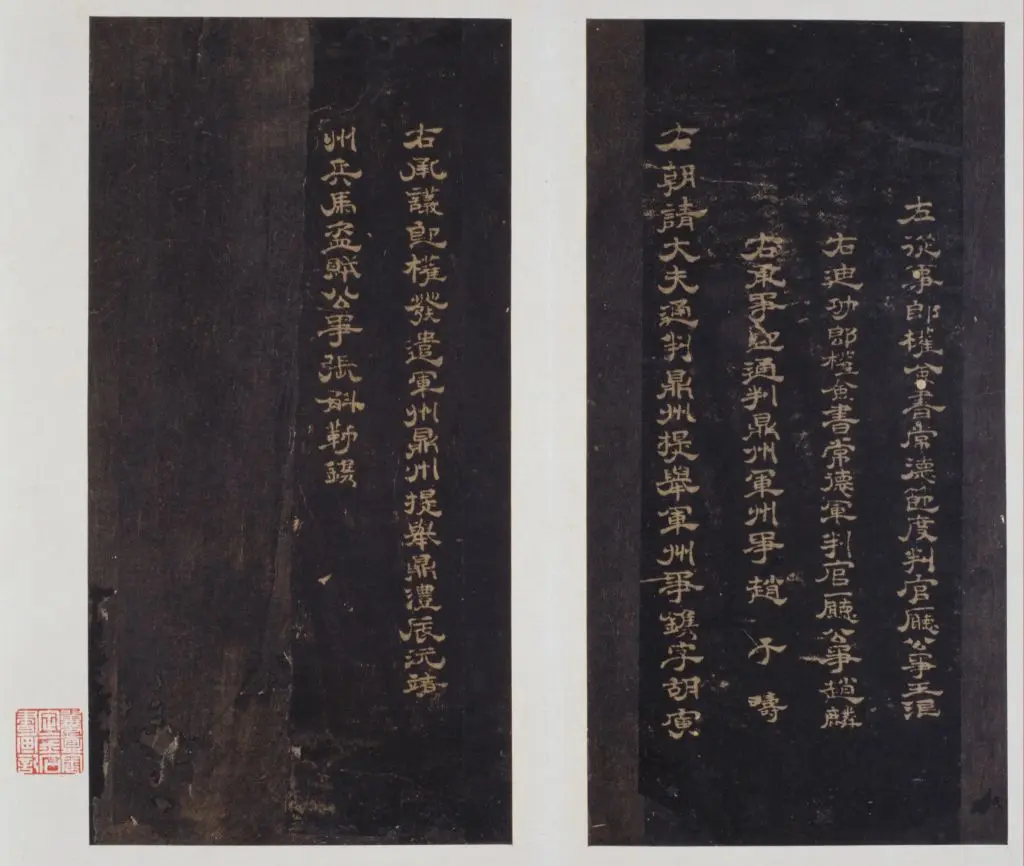 左從事郎權僉書常德節度判官廳公事王浪
右迪功郎權僉書常德軍判官廳公事趙麟
右承事郎通判鼎州軍州事趙子疇
右朝請大夫通判鼎州提舉軍州事鐫字胡寅
右承議郎權發遣軍州鼎州提舉鼎澧辰沅靖
州兵馬盜賊公事張斛勒鐫